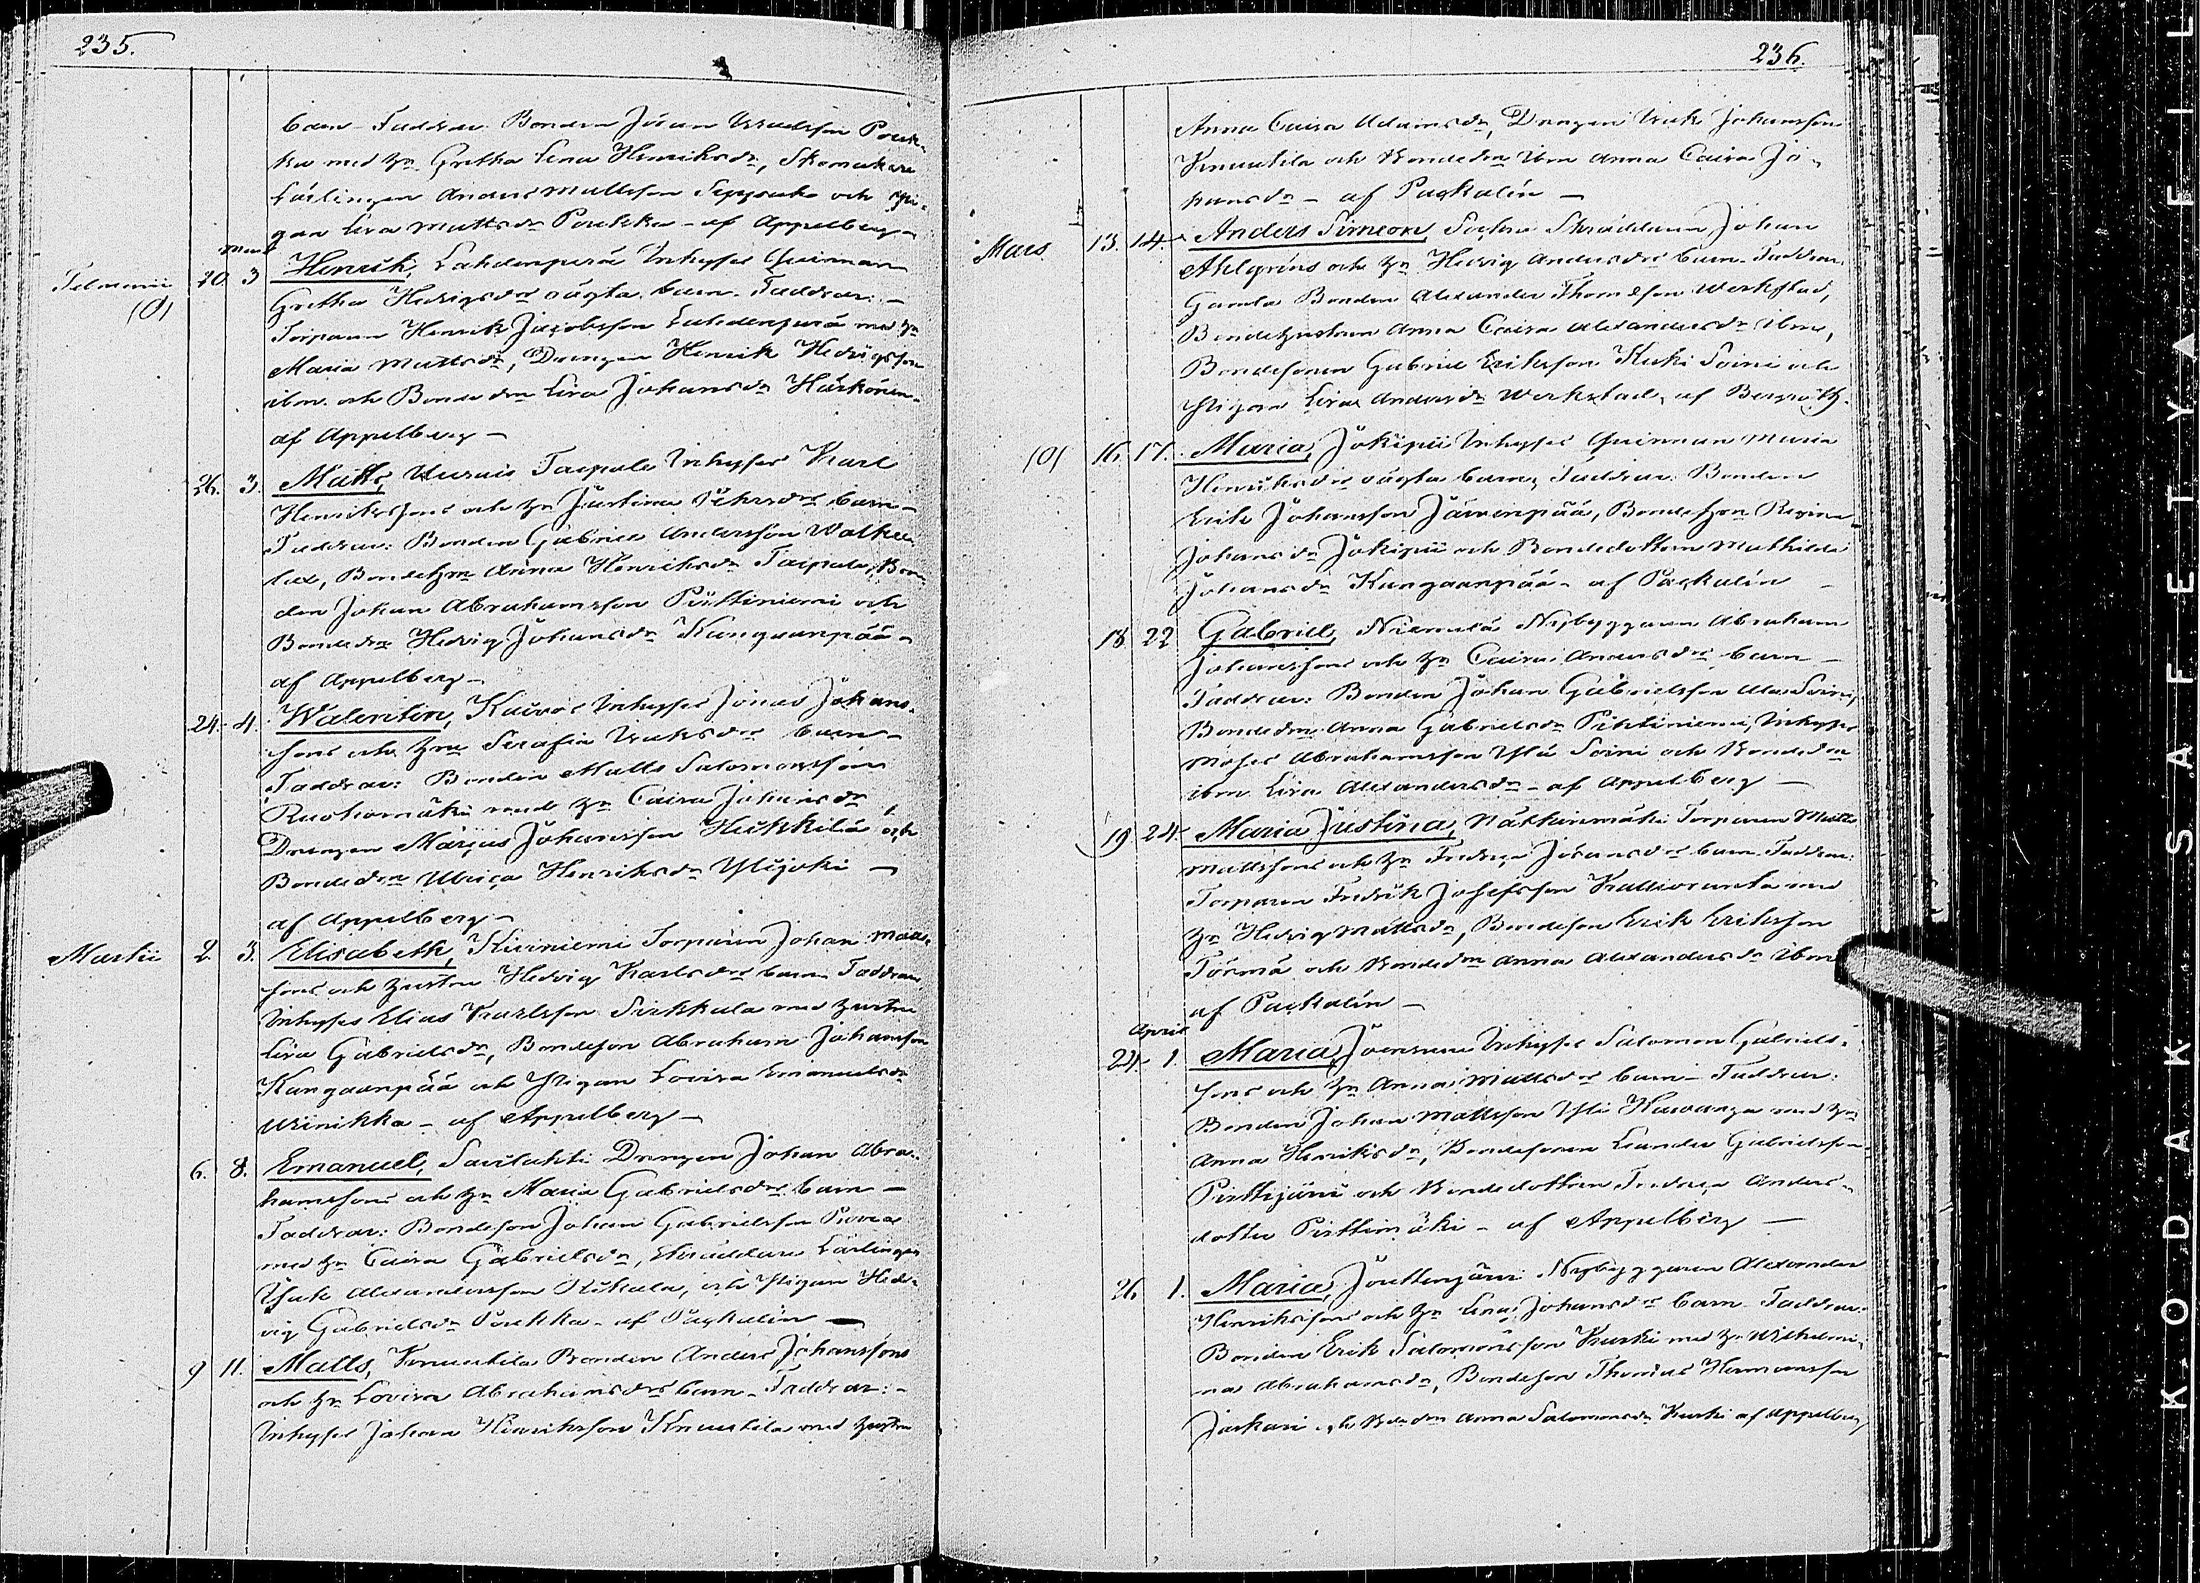 235.
barn. Faddrar: Bonden Jöran Isaksson Pouk-
ka med h:n Gretha Lena Henriksdr, Skomakare
Lärlingen Anders Mattsson Seppouk och Pi-
gan Lisa Mattsdr Poukka - af Appelberg -
Mars
Februarii 20. 3 Henrik, Lahdenperä Inhyses Qvinnan
(O)
Gretha Hedvigsdrs oägta barn. Faddrar: -
Torparen Henrik Jacobsson Lahdenperä med h:n
Maria Mattsdr, Drengen Henrik Hedvigsson
ibm. och Bonde drn Lisa Johansdr Härkönen -
af Appelberg -
26. 3. Matts, Taipale Inhyses Karl
Henrikssons och h:n Justina barn -
Faddrar: Bonden Gabriel Andersson Walkea
, Bondehn Anna Henriksdr Taipale, Bon-
den Johan Abrahamsson Pirttiniemi och
Bonde drn Hedvig Johansdr Kangaanpää -
af Appelberg -
24. 4. Walentin, Inhyses Jonas Johans-
sons och h:ns Serafia Isaksdrs barn -
Faddrar: Bonden Matts Salomonsson
Ruohomäki med h:n Caisa Johansdr,
Drengen Marius Johansson Heikkilä och
Bonde drn Ulrica Henriksdr Ylijoki -
af Appelberg -
Martii 2. 3. Elisabeth, Kiviniemi Torparen Johan Matts-
sons och hustru Hedvig Karlsdrs barn Faddrar
Inhyses Elias Karlsson Sirkkala med hustru
Lisa Gabrielsdr, Bondeson Abraham Johansson
Kangaanpää och Pigan Lovisa Emanuelsdr
Wiinikka - af Appelberg -
6. 8. Emanuel, Savilahti Drengen Johan Abra-
hamssons och h:n Maria Gabrielsdrs barn -
Faddrar: Bondeson Johan Gabrielsson
med h:n Caisa Gabrielsdr, Skräddare Lärlingen
Isak Alexandersson , och Pigan Hed-
vig Gabrielsdr Poukka - af Paskalín -
9 11. Matts, Knuutila Bonden Anders Johanssons
och h:n Lovisa Abrahamsdrs barn - Faddrar: -
Inhyses Johan Henriksson Knuutila med hustru
236.
Anna Caisa Adamsdr, Drengen Isak Johansson
Knuutila och Bonde drn ibm Anna Caisa Jo-
hansdr - af Paskalín -
Mars 13. 14. Anders Simeon, Sockne Skräddaren Johan
Ahlgréns och h:n Hedvig Andersdrs barn. Faddrar.
Gamla Bonden Alexander Thomsson Werkstad,
Bondehustrun Anna Caisa Alexandersdr ibm,
Bondesonen Gabriel Eriksson Keski Soini och
Pigan Lisa Andersdr Werkstad, af Bergroth.
(O) 16. 17. Maria, Jokipii Inhyses Qvinnan Maria
Henriksdrs oägta barn, Faddrar: Bonden
Erik Johansson Järvenpää, Bonde h:n Regina
Johansdr Jokipii och Bondedottern Mathilda
Johansdr Kangaanpää - af Paskalín -
18 22 Gabriel, Niemelä Nybyggaren Abraham
Johanssons och h:n Caisa Andersdrs barn -
Faddrar: Bonden Johan Gabrielsson Ala Soini,
Bonde drn Anna Gabrielsdr Pirttiniemi, Inhyses
Moses Abrahamsson Yli Soini och Bonde drn
ibm Lisa Alexandersdr - af Appelberg -
19 24. Maria Justina, Torparen Matts
Mattssons och h:n Fredrica Jöransdrs barn. Faddrar:
Torparen Fredrik Josefsson Kallioranta med
h:n Hedvig Mattsdr, Bondeson Erik Eriksson
Törmä och Bonde drn Anna Alexandersdr ibm
af Paskalín -
April
24. 1. Maria, Joensuu Inhyses Salomon Gabriels-
sons och h:n Anna Mattsdrs barn - Faddrar:
Bonden Johan Mattsson Yli Hawanga med h:n
Anna Henriksdr, Bondesonen Leander Gabrielsson
Pirttijärvi och Bondedottren Fredrica Anders-
dotter Pirttimäki - af Appelberg -
26 1. Maria, Jouttenjärvi Nybyggaren Alexander
Henrikssons och h:n Lena Johansdrs barn Faddrar:
Bonden Erik Salomonsson Kurki med h:n Wilhelmi-
na Abrahamsdr, Bondeson Thomas Hermansson
och Bonde drn Anna Salomonsdr Kurki af Appelberg
KODAK SAFETY FIL